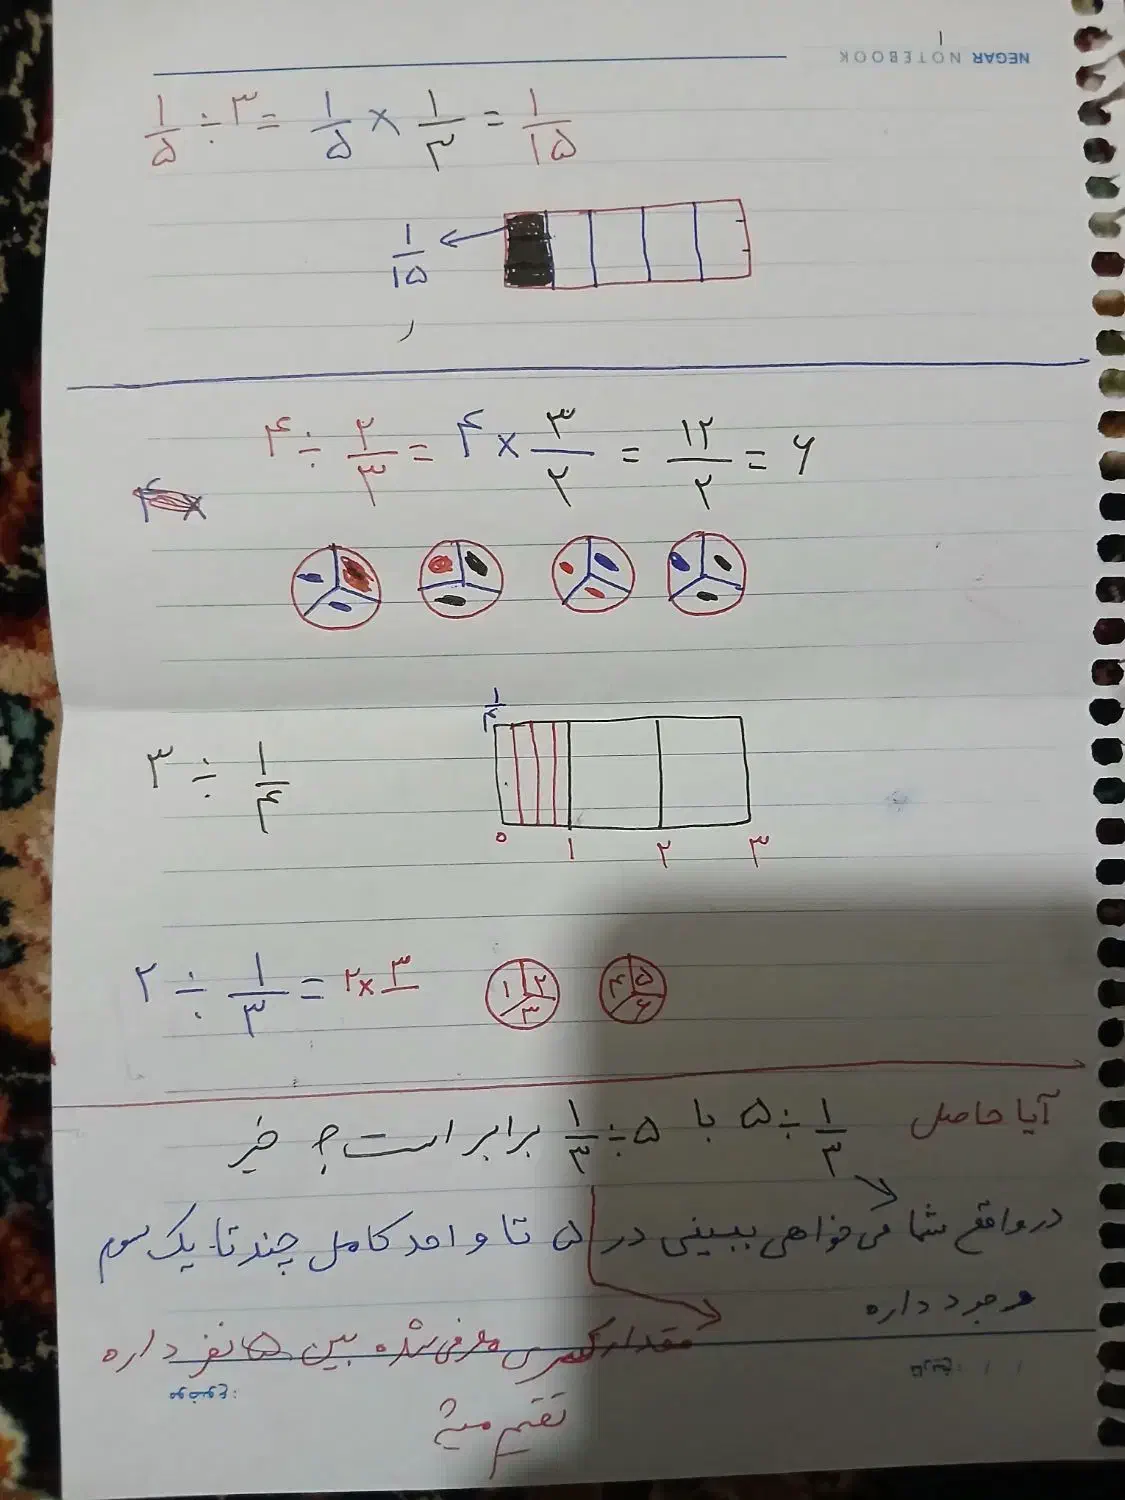 NEGAR NOTEBOOK
۱/۵ ÷ ۳ = ۱/۵ × ۱/۳ = ۱/۱۵
۱/۱۵
۴ ÷ ۲/۳ = ۴ × ۳/۲ = ۱۲/۲ = ۶
۱/۴
۳ ÷ ۱/۴
۰ ۱ ۲ ۳
۲ ÷ ۱/۳ = ۲ × ۳ ۱ ۲ ۳ ۴ ۵ ۶
آیا حاصل ۱/۳ ÷ ۵ با ۵ ÷ ۱/۳ برابر است؟ خیر
در واقع شما می‌خواهی ببینی در ۵ تا واحد کامل چند تا یک سوم
وجود داره
مقدار کسری معرفی شده بین ۵ نفر داره
تقسیم میشه